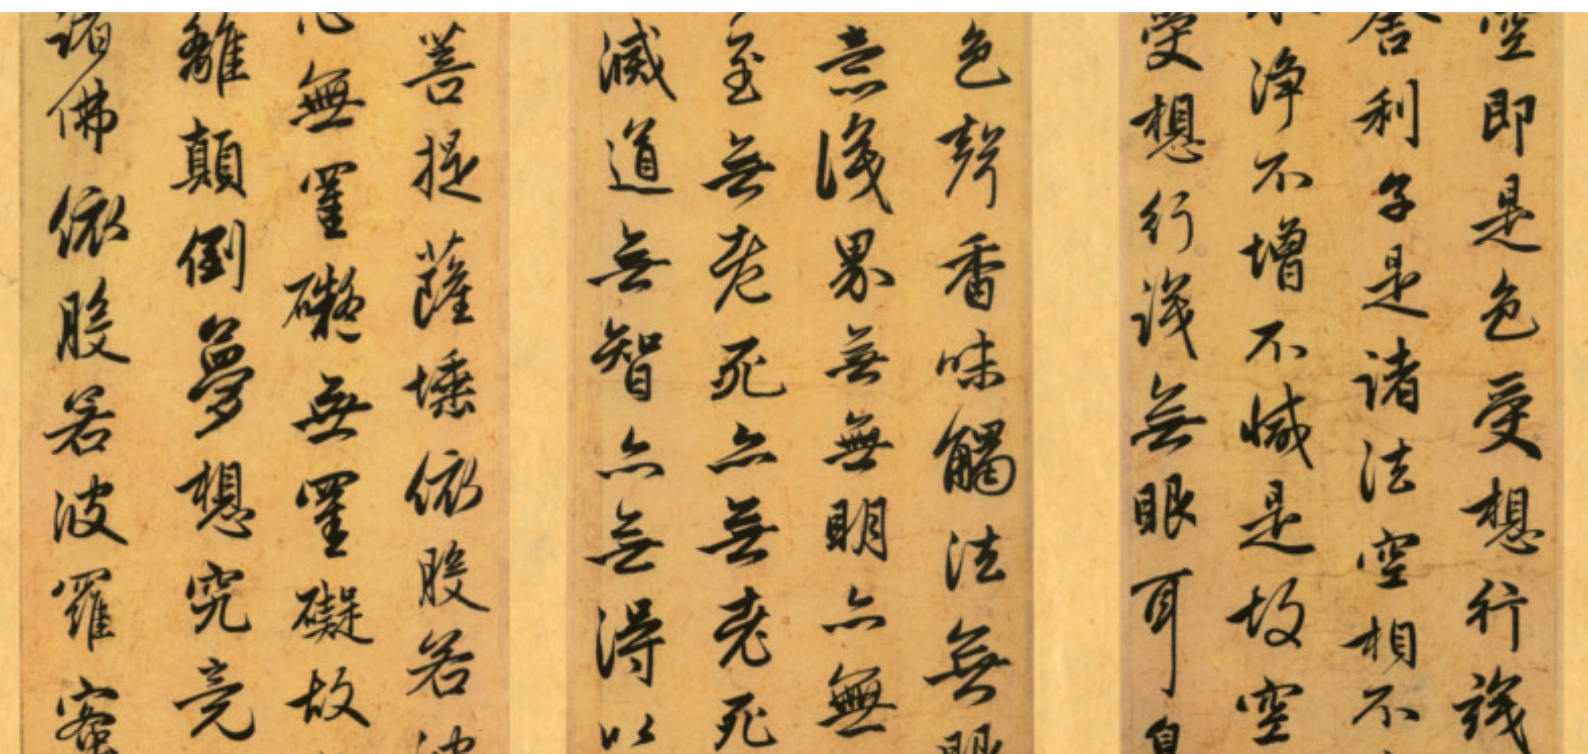 空即是色受想行識
舍利子是諸法空相不
淨不增不減是故空
受想行識無眼耳
色聲香味觸法無眼
意識界無無明亦無
至無老死亦無老死
滅道無智亦無得以
菩提薩埵依般若波
心無罣礙無罣礙故
離顛倒夢想究竟
諸佛依般若波羅蜜